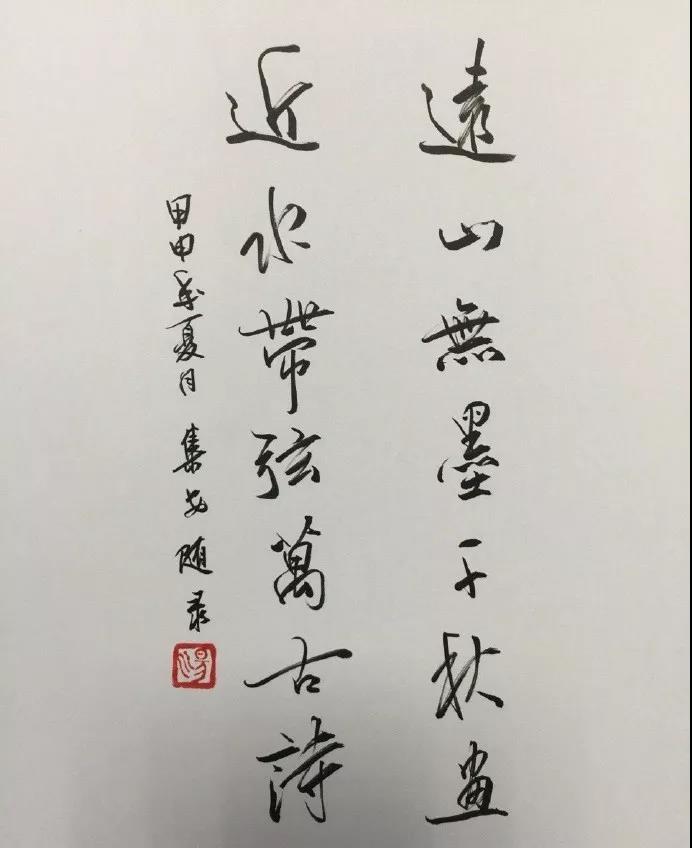 遠山無墨千秋畫
近水帶弦萬古詩
甲申年夏月 集安随录